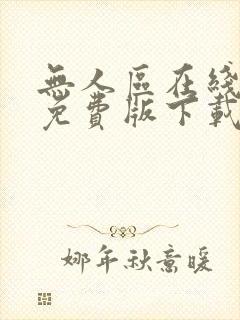 無人區在綫
免費版下載
娜年秋意暖